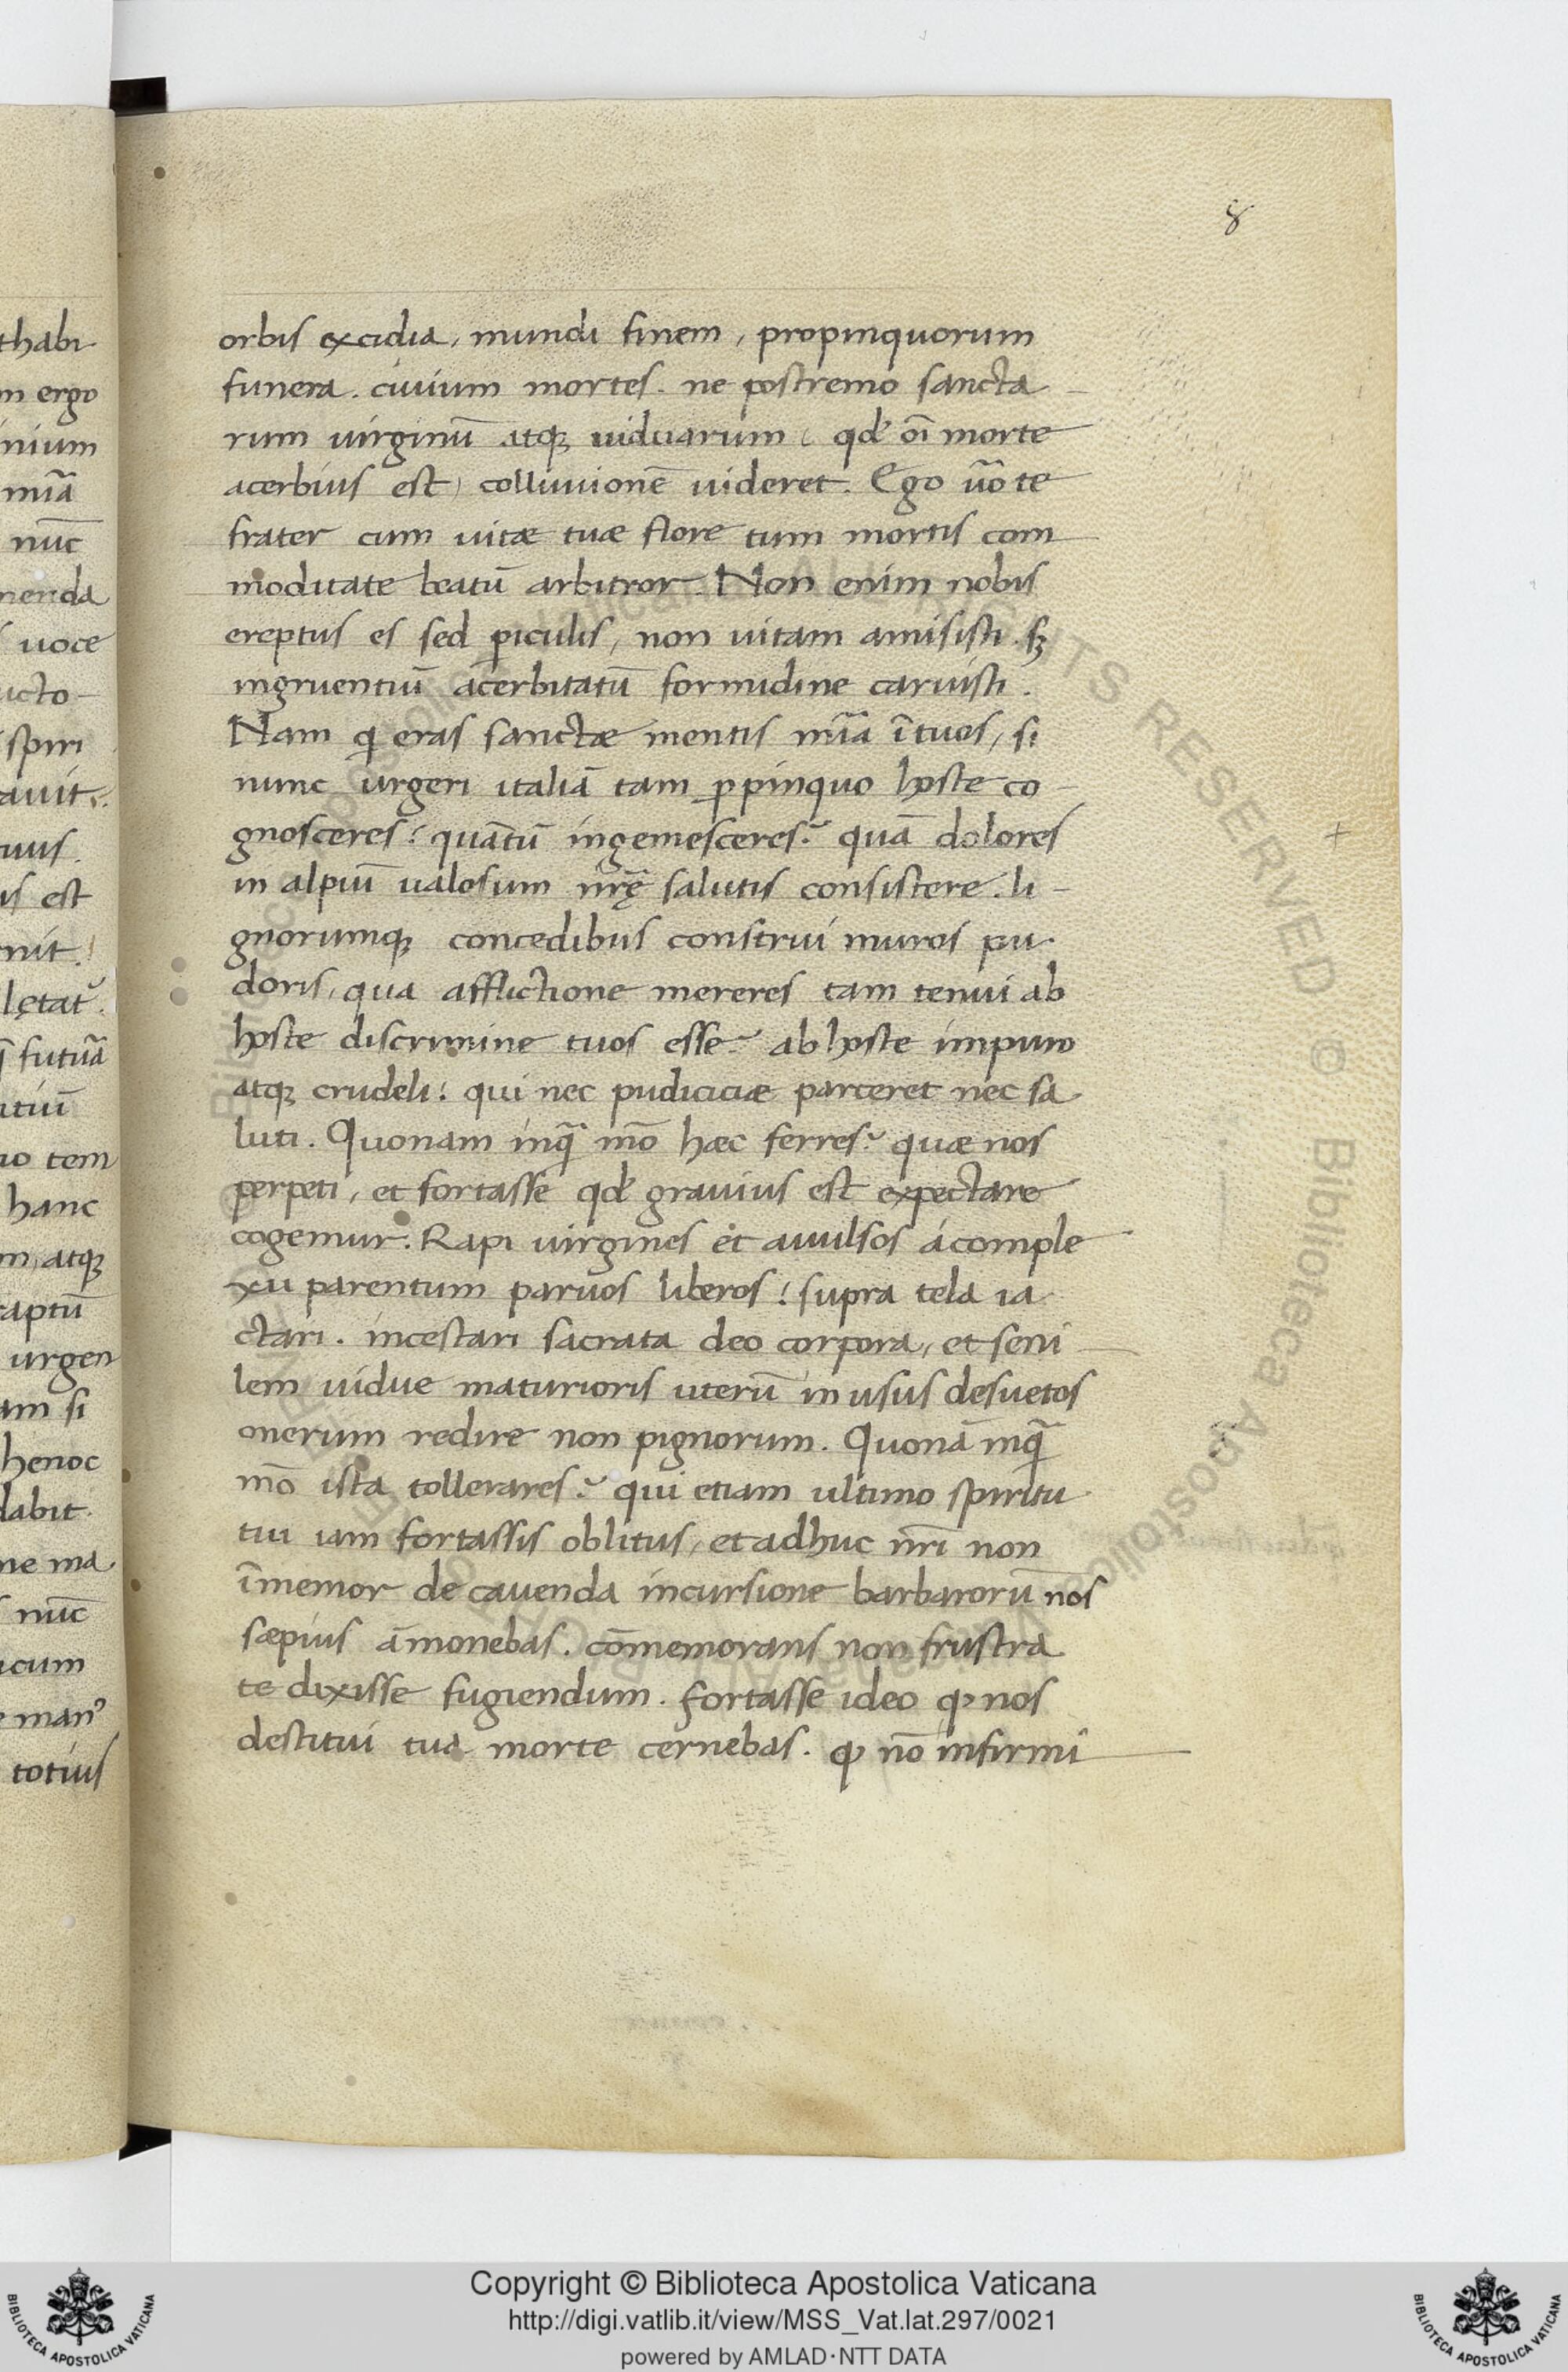 8
thabi
m ergo
inium
mīa
nūc
menda
uoce
ucto
spiri
auit
tuus.
us est
nit.
lętat᷒.
futuā
itiū
no tem
hanc
m atqꝫ
raptū
urgen
am si
henoc
dabit.
ne ma
nūc
icum
man᾽
totius
orbis excidia, mundi finem, propinquorum
funera. ciuium mortes. ne postremo sancta
rum uirginū atqꝫ uiduarum ( qd᾽ oī morte
acerbius est) colluuionē uideret. Ego ūo te
frater cum uitæ tuæ flore tum mortis com
moditate beatū arbitror. Non enim nobis
ereptus es sed ꝑiculis, non uitam amisisti. sꝫ
ingruentiū acerbitatū formidine caruisti.
Nam q̇ eras sanctæ mentis mīa ī tuos, si
nunc urgeri italiā tam ꝓpinquo hoste co
gnosceres? quātū ingemesceres? quā dolores
in alpiū ualosum nr̄ę salutis consistere. li
gnorumqꝫ concedibus construi muros pu
doris, qua afflictione mereres tam tenui ab
hoste discrimine tuos esse? ab hoste impuro
atqꝫ crudeli! qui nec pudiciciæ parceret nec sa
luti. Quonam inq̄ mō hæc ferres? quæ nos
perpeti, et fortasse qd᾽ grauius est expectare
cogemur. Rapi uirgines et auulsos á comple
xu parentum paruos liberos! supra tela ia
ctari. incestari sacrata deo corpora, et seni
lem uidue maturioris uterū in usus desuetos
onerum redire non pignorum. Quonā inq̄
mō ista tollerares? qui etiam ultimo spiritu
tui iam fortassis oblitus, et adhuc nr̄i non
īmemor de cauenda incursione barbarorū nos
sæpius āmonebas. cōmemorans non frustra
te dixisse fugiendum. fortasse ideo ꝙ nos
destitui tua morte cernebas. ꝙ nō infirmi
Copyright © Biblioteca Apostolica Vaticana
http://digi.vatlib.it/view/MSS_Vat.lat.297/0021
powered by AMLAD·NTT DATA
BIBLIOTECA APOSTOLICA VATICANA
BIBLIOTECA APOSTOLICA VATICANA